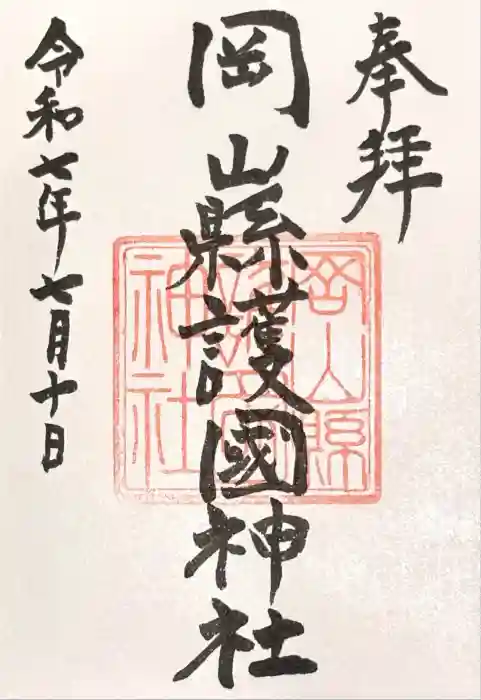 奉拝
岡山縣護國神社
岡山縣
護國
神社
令和七年七月十日